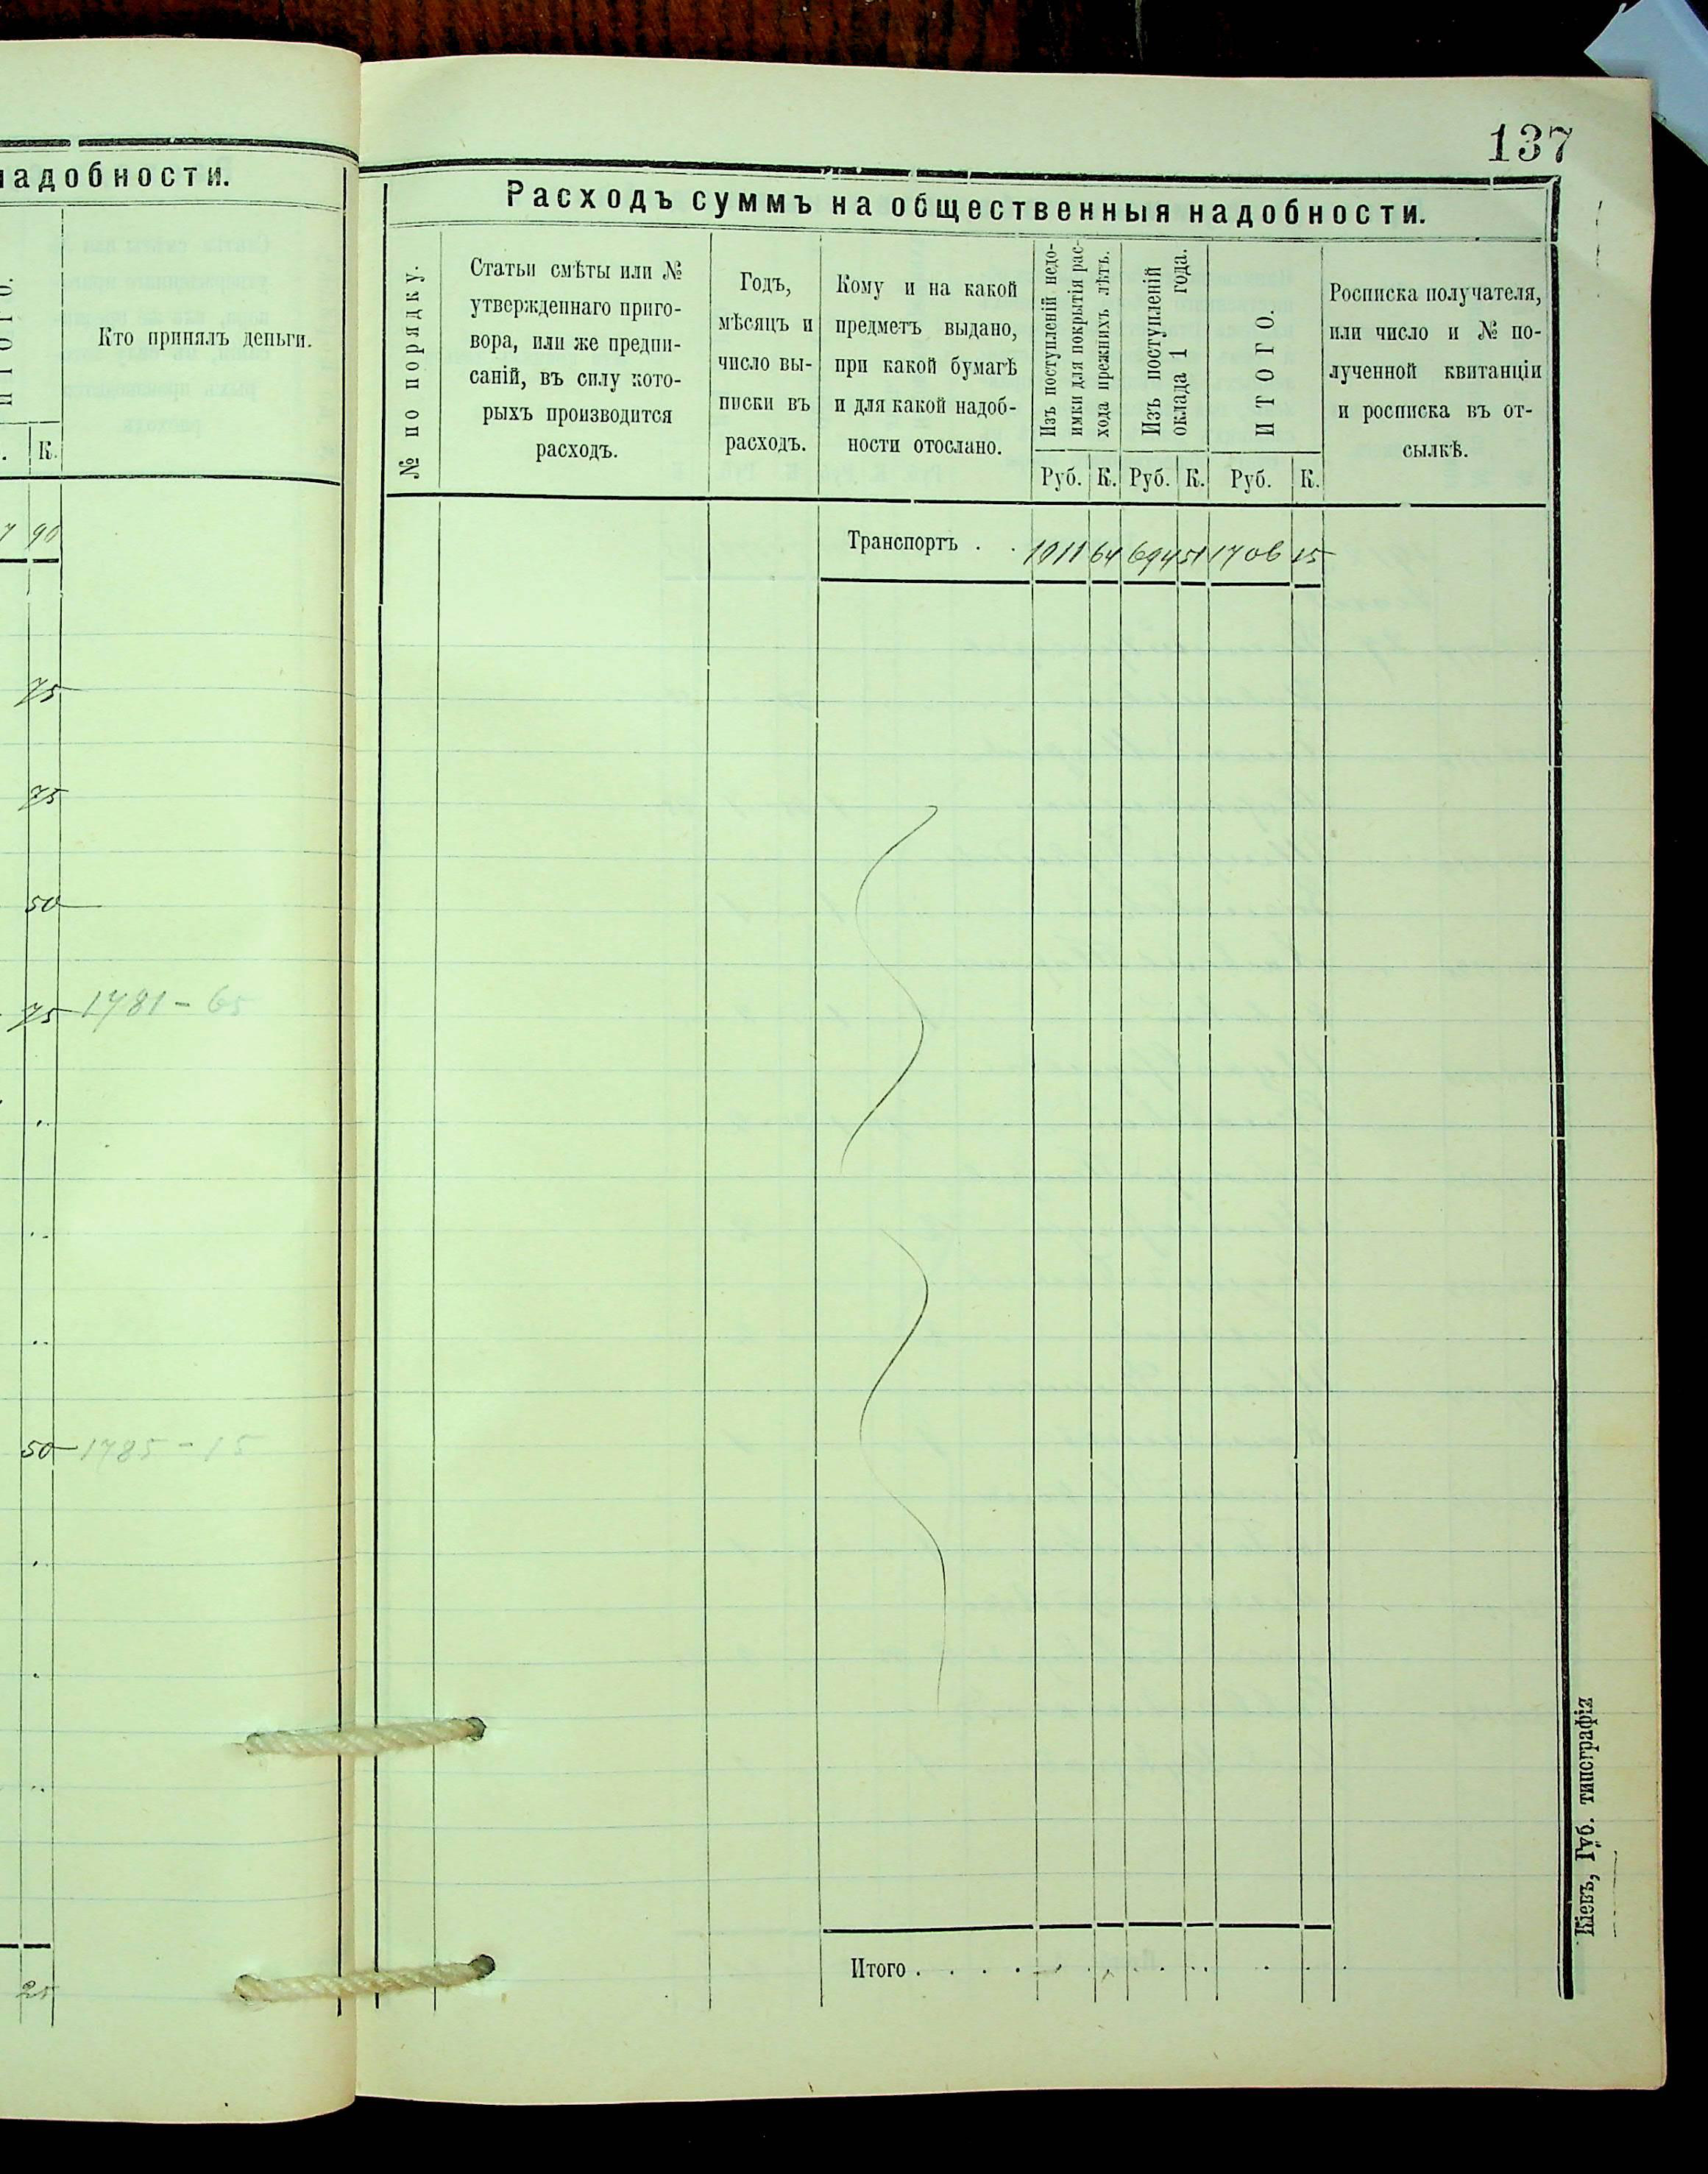 надобности.
ИТОГО.
Кто принялъ деньги.
К.
90
75
75
50
75 1781 - 65
50 1785 - 15
25
137
Расходъ суммъ на общественныя надобности.
№ по порядку.
Статьи смѣты или №
утвержденнаго приго-
вора, или же предпи-
саній, въ силу кото-
рыхъ производится
расходъ.
Годъ,
мѣсяцъ и
число вы-
писки въ
расходъ.
Кому и на какой
предметъ выдано,
при какой бумагѣ
и для какой надоб-
ности отослано.
Изъ поступленій недо-
имки для покрытія рас-
хода прежнихъ лѣтъ.
Изъ поступленій
оклада 1 года.
ИТОГО.
Росписка получателя,
или число и № по-
лученной квитанціи
и росписка въ от-
сылкѣ.
Руб. К. Руб. К. Руб. К.
Транспортъ . . 1011 64 694 51 1706 15
Итого . . . .
Кіевъ, Губ. типографія